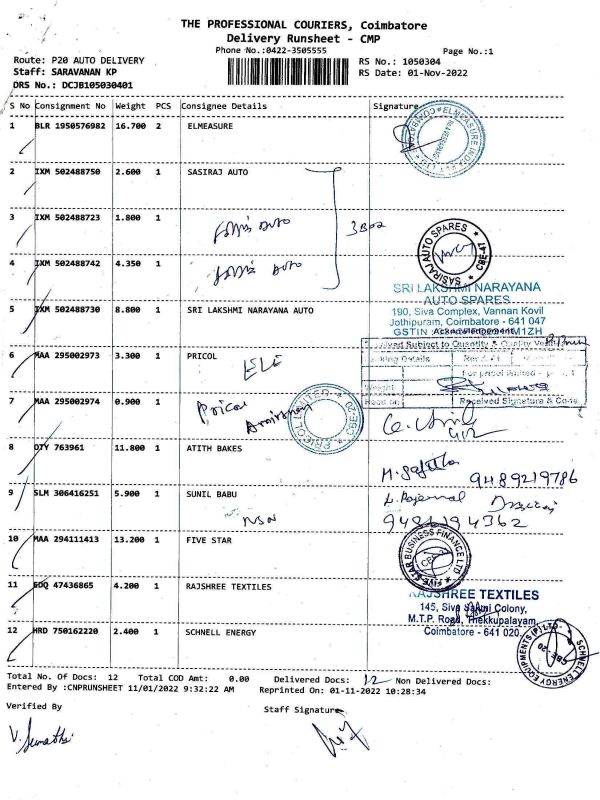 THE PROFESSIONAL COURIERS, Coimbatore
Delivery Runsheet - CMP
Phone No.:0422-3505555
Page No.:1
Route: P20 AUTO DELIVERY
Staff: SARAVANAN KP
DRS No.: DCJB105030401
RS No.: 1050304
RS Date: 01-Nov-2022
S No Consignment No Weight PCS Consignee Details Signature
1 BLR 1950576982 16.700 2 ELMEASURE
2 IXM 502488750 2.600 1 SASIRAJ AUTO
3 IXM 502488723 1.800 1
3 Box
SASIRAJ AUTO SPARES
4 IXM 502488742 4.350 1
SRI LAKSHMI NARAYANA
AUTO SPARES
5 IXM 502488730 8.800 1 SRI LAKSHMI NARAYANA AUTO
190, Siva Complex, Vannan Kovil
Jothipuram, Coimbatore - 641 047
Acknowledgement
Received Subject to Quantity & Quality
6 MAA 295002973 3.300 1 PRICOL
ELE
Weight
Received Signature & Code
7 MAA 295002974 0.900 1
Pricol
PRICOL LIMITED
8 DTY 763961 11.800 1 ATITH BAKES
9489219786
9 SLM 306416251 5.900 1 SUNIL BABU
9486194362
10 MAA 294111413 13.200 1 FIVE STAR
FIVE STAR BUSINESS FINANCE LTD
11 EDQ 47436865 4.200 1 RAJSHREE TEXTILES
RAJSHREE TEXTILES
145, Siva Sakthi Colony,
M.T.P. Road, Thekkupalayam,
Coimbatore - 641 020
12 HRD 750162220 2.400 1 SCHNELL ENERGY
SCHNELL ENERGY EQUIPMENTS (P) LTD
CBE-20
Total No. Of Docs: 12 Total COD Amt: 0.00 Delivered Docs: 12 Non Delivered Docs:
Entered By :CNPRUNSHEET 11/01/2022 9:32:22 AM Reprinted On: 01-11-2022 10:28:34
Verified By
Staff Signature